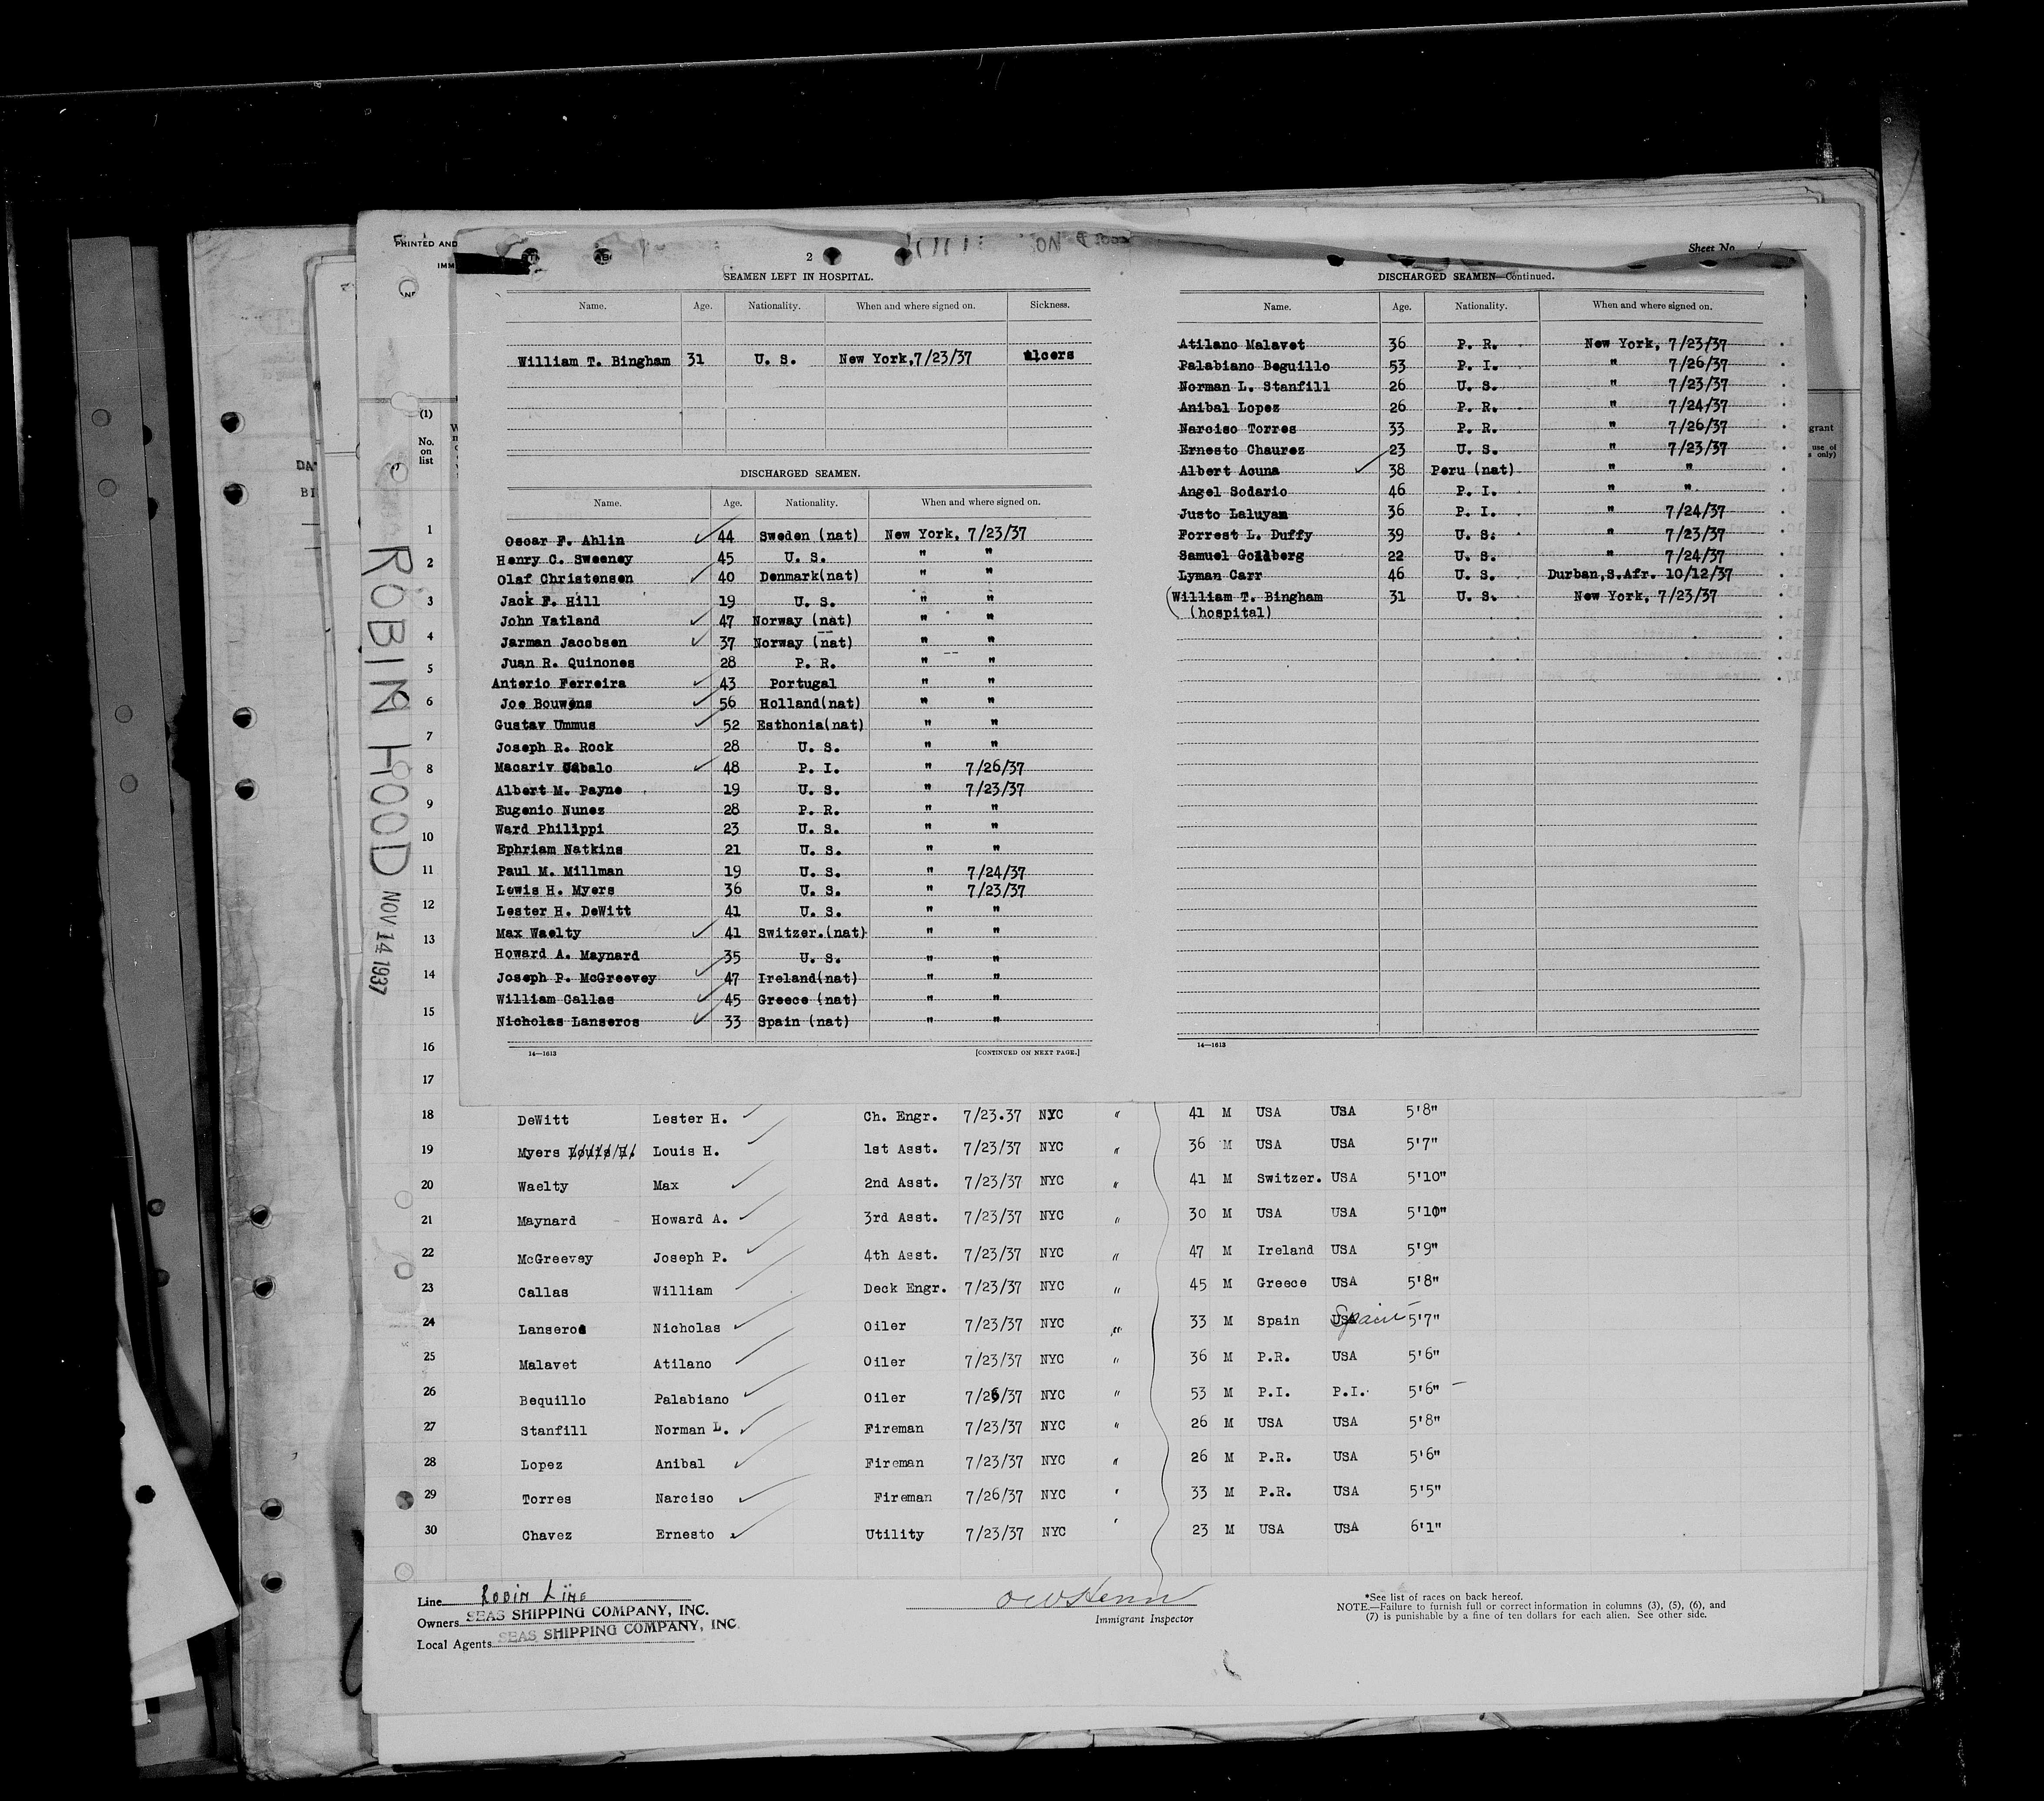 PRINTED AND
IMM
Sheet No.
2
SEAMEN LEFT IN HOSPITAL.
Name. Age. Nationality. When and where signed on. Sickness.
William T. Bingham 31 U. S. New York,7/23/37 ulcers
DISCHARGED SEAMEN.
Name. Age. Nationality. When and where signed on.
Oscar F. Ahlin 44 Sweden (nat) New York, 7/23/37
Henry C. Sweeney 45 U. S. " "
Olaf Christensen 40 Denmark(nat) " "
Jack F. Hill 19 U. S. " "
John Vatland 47 Norway (nat) " "
Jarman Jacobsen 37 Norway (nat) " "
Juan R. Quinones 28 P. R. " "
Anterio Ferreira 43 Portugal " "
Joe Bouwens 56 Holland(nat) " "
Gustav Ummus 52 Esthonia(nat) " "
Joseph R. Rock 28 U. S. " "
Macariv Cabalo 48 P. I. " 7/26/37
Albert M. Payne 19 U. S. " 7/23/37
Eugenio Nunez 28 P. R. " "
Ward Philippi 23 U. S. " "
Ephriam Natkins 21 U. S. " "
Paul M. Millman 19 U. S. " 7/24/37
Lewis H. Myers 36 U. S. " 7/23/37
Lester H. DeWitt 41 U. S. " "
Max Waelty 41 Switzer.(nat) " "
Howard A. Maynard 35 U. S. " "
Joseph P. McGreevey 47 Ireland(nat) " "
William Callas 45 Greece (nat) " "
Nicholas Lanseros 33 Spain (nat) " "
14—1613 [CONTINUED ON NEXT PAGE.]
DISCHARGED SEAMEN—Continued.
Name. Age. Nationality. When and where signed on.
Atilano Malavet 36 P. R. New York, 7/23/37
Palabiano Beguillo 53 P. I. " 7/26/37
Norman L. Stanfill 26 U. S. " 7/23/37
Anibal Lopez 26 P. R. " 7/24/37
Narciso Torres 33 P. R. " 7/26/37
Ernesto Chaurez 23 U. S. " 7/23/37
Albert Acuna 38 Peru (nat) " "
Angel Sodario 46 P. I. " "
Justo Laluyan 36 P. I. " 7/24/37
Forrest L. Duffy 39 U. S. " 7/23/37
Samuel Goldberg 22 U. S. " 7/24/37
Lyman Carr 46 U. S. Durban,S.Afr. 10/12/37
(William T. Bingham 31 U. S. New York, 7/23/37
(hospital)
14—1613
(1)
No.
on
list
grant
use of
s only)
ROBIN HOOD NOV 14 1937
1
2
3
4
5
6
7
8
9
10
11
12
13
14
15
16
17
18 DeWitt Lester H. Ch. Engr. 7/23.37 NYC " 41 M USA USA 5'8"
19 Myers Louis H. Louis H. 1st Asst. 7/23/37 NYC " 36 M USA USA 5'7"
20 Waelty Max 2nd Asst. 7/23/37 NYC " 41 M Switzer. USA 5'10"
21 Maynard Howard A. 3rd Asst. 7/23/37 NYC " 30 M USA USA 5'10"
22 McGreevey Joseph P. 4th Asst. 7/23/37 NYC " 47 M Ireland USA 5'9"
23 Callas William Deck Engr. 7/23/37 NYC " 45 M Greece USA 5'8"
24 Lanseros Nicholas Oiler 7/23/37 NYC " 33 M Spain USA Spain 5'7"
25 Malavet Atilano Oiler 7/23/37 NYC " 36 M P.R. USA 5'6"
26 Bequillo Palabiano Oiler 7/26/37 NYC " 53 M P.I. P.I. 5'6"
27 Stanfill Norman L. Fireman 7/23/37 NYC " 26 M USA USA 5'8"
28 Lopez Anibal Fireman 7/23/37 NYC " 26 M P.R. USA 5'6"
29 Torres Narciso Fireman 7/26/37 NYC ' 33 M P.R. USA 5'5"
30 Chavez Ernesto Utility 7/23/37 NYC ' 23 M USA USA 6'1"
Line Robin Line
Owners SEAS SHIPPING COMPANY, INC.
Local Agents SEAS SHIPPING COMPANY, INC
Immigrant Inspector
*See list of races on back hereof.
NOTE.—Failure to furnish full or correct information in columns (3), (5), (6), and
(7) is punishable by a fine of ten dollars for each alien. See other side.